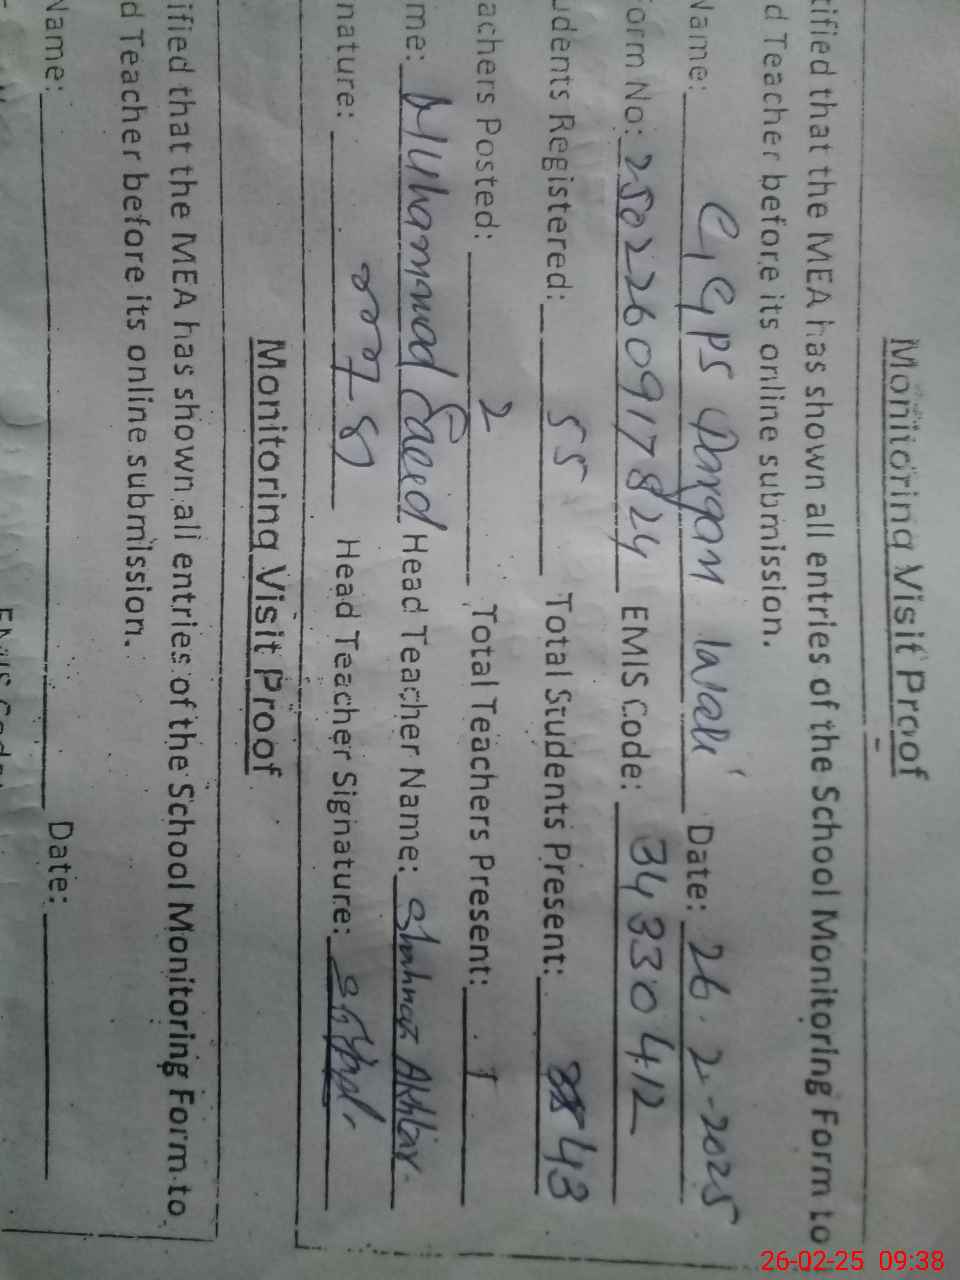 Monitoring Visit Proof
tified that the MEA has shown all entries of the School Monitoring Form to
d Teacher before its online submission.
Name: GGPS Dargan Wali Date: 26.2-2025
orm No: 2502260917824 EMIS Code: 34330412
udents Registered: 55 Total Students Present: 43
achers Posted: 2 Total Teachers Present: 1
me: Muhammad Saeed Head Teacher Name: Shahnaz Akhtar
nature: Head Teacher Signature:
Monitoring Visit Proof
ified that the MEA has shown all entries of the School Monitoring Form to
d Teacher before its online submission.
Name: Date:
EMIS Code:
26-02-25 09:38